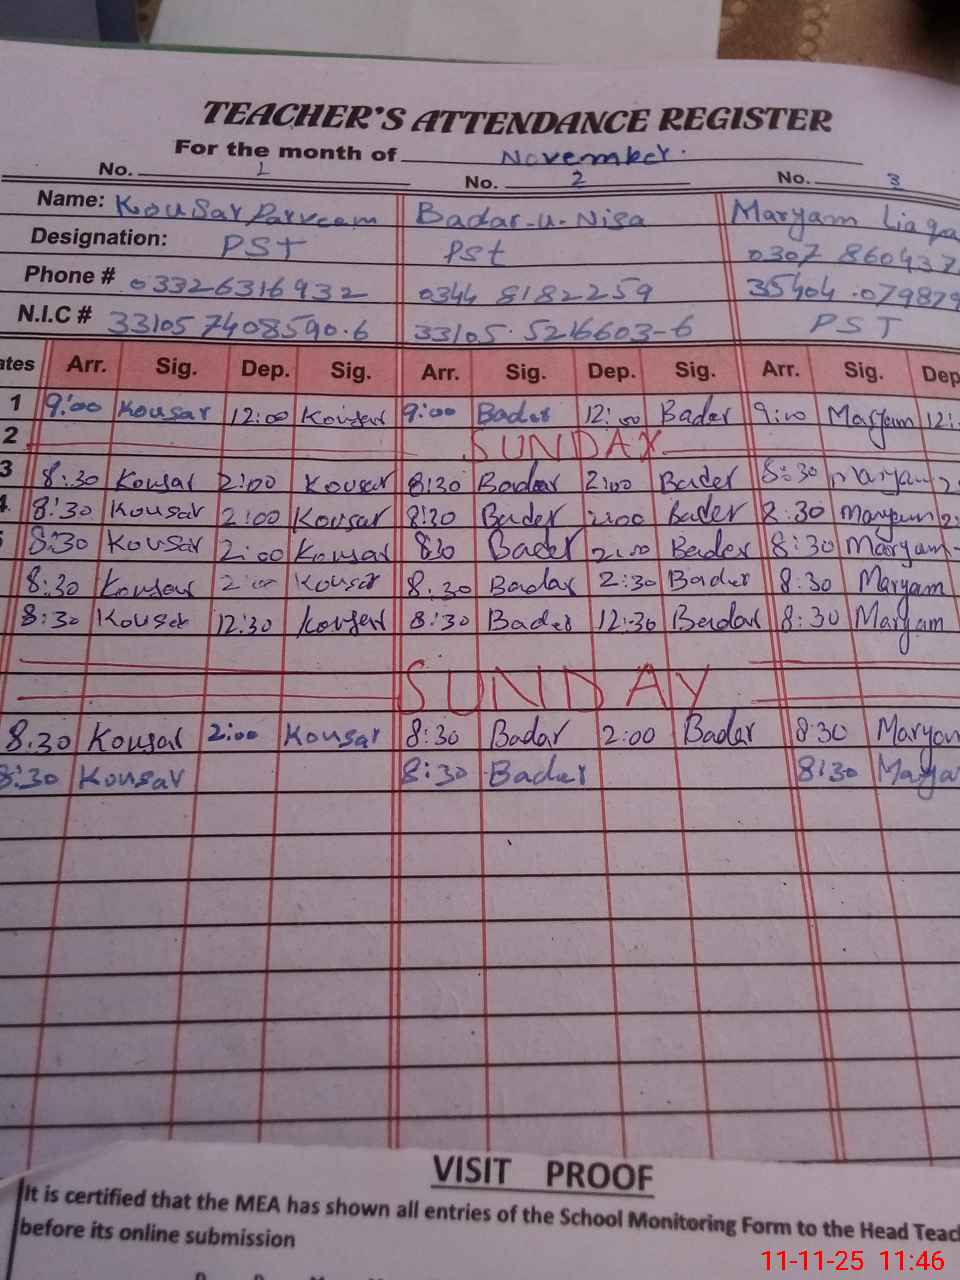 TEACHER'S ATTENDANCE REGISTER
For the month of November.
No. 1 No. 2 No. 3
Name: Kousar Parveen Badar-u-Nisa Maryam Liaqa
Designation: PST Pst 0307 860437
Phone # 03326316932 0344 8182259 35404.079879
N.I.C # 33105 7408590.6 33105.5216603-6 PST
ates Arr. Sig. Dep. Sig. Arr. Sig. Dep. Sig. Arr. Sig. Dep
1 9:00 Kousar 12:00 Kousar 9:00 Badar 12:00 Badar 9:00 Maryam 12:
2 SUNDAY
3 8:30 Kousar 2:00 Kousar 8:30 Badar 2:00 Badar 8:30 Maryam 2
4 8:30 Kousar 2:00 Kousar 8:30 Badar 2:00 Badar 8:30 Maryam 2
8:30 Kousar 2:00 Kousar 830 Badar 2:00 Badar 8:30 Maryam
8:30 Kousar 2:00 Kousar 8:30 Badar 2:30 Badar 8:30 Maryam
8:30 Kousar 12:30 Kousar 8:30 Badar 12:30 Badar 8:30 Maryam
SUNDAY
8.30 Kousar 2:00 Kousar 8:30 Badar 2:00 Badar 8:30 Maryam
8:30 Kousar 8:30 Badar 8:30 Marya
VISIT PROOF
It is certified that the MEA has shown all entries of the School Monitoring Form to the Head Teac
before its online submission
11-11-25 11:46